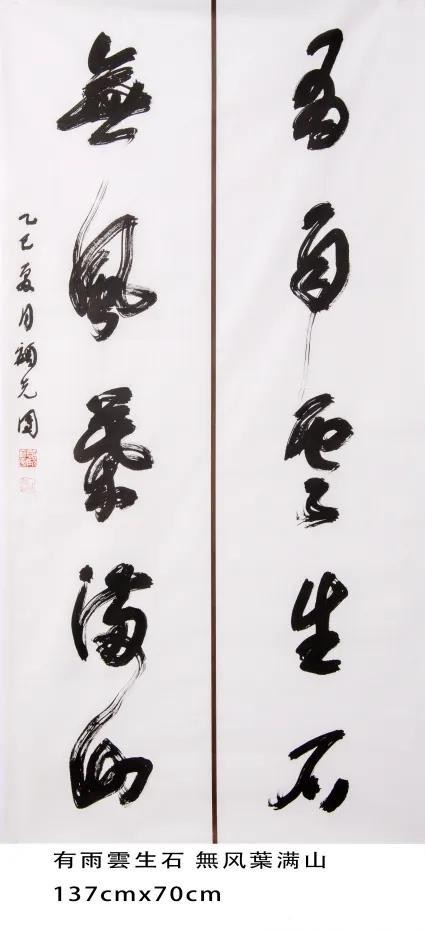 有雨雲生石
無風葉满山
乙巳夏月顔允圖
有雨雲生石 無风葉满山
137cmx70cm